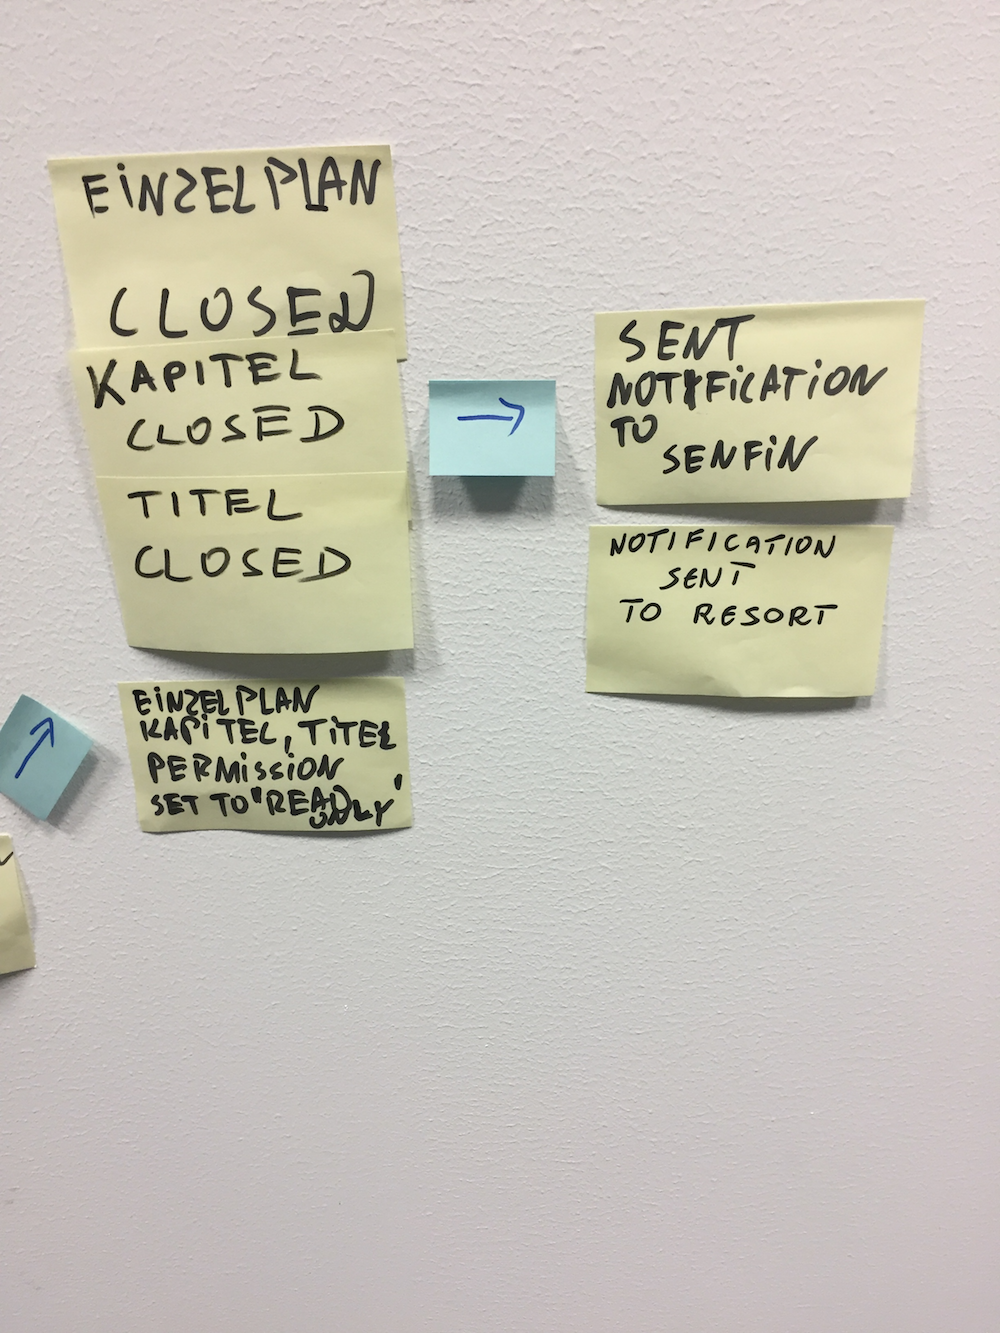 EINZELPLAN
CLOSED
KAPITEL
CLOSED
TITEL
CLOSED
EINZELPLAN
KAPITEL, TITEL
PERMISSION
SET TO "READ
ONLY"
→
→
SENT
NOTIFICATION
TO
SENFIN
NOTIFICATION
SENT
TO RESORT